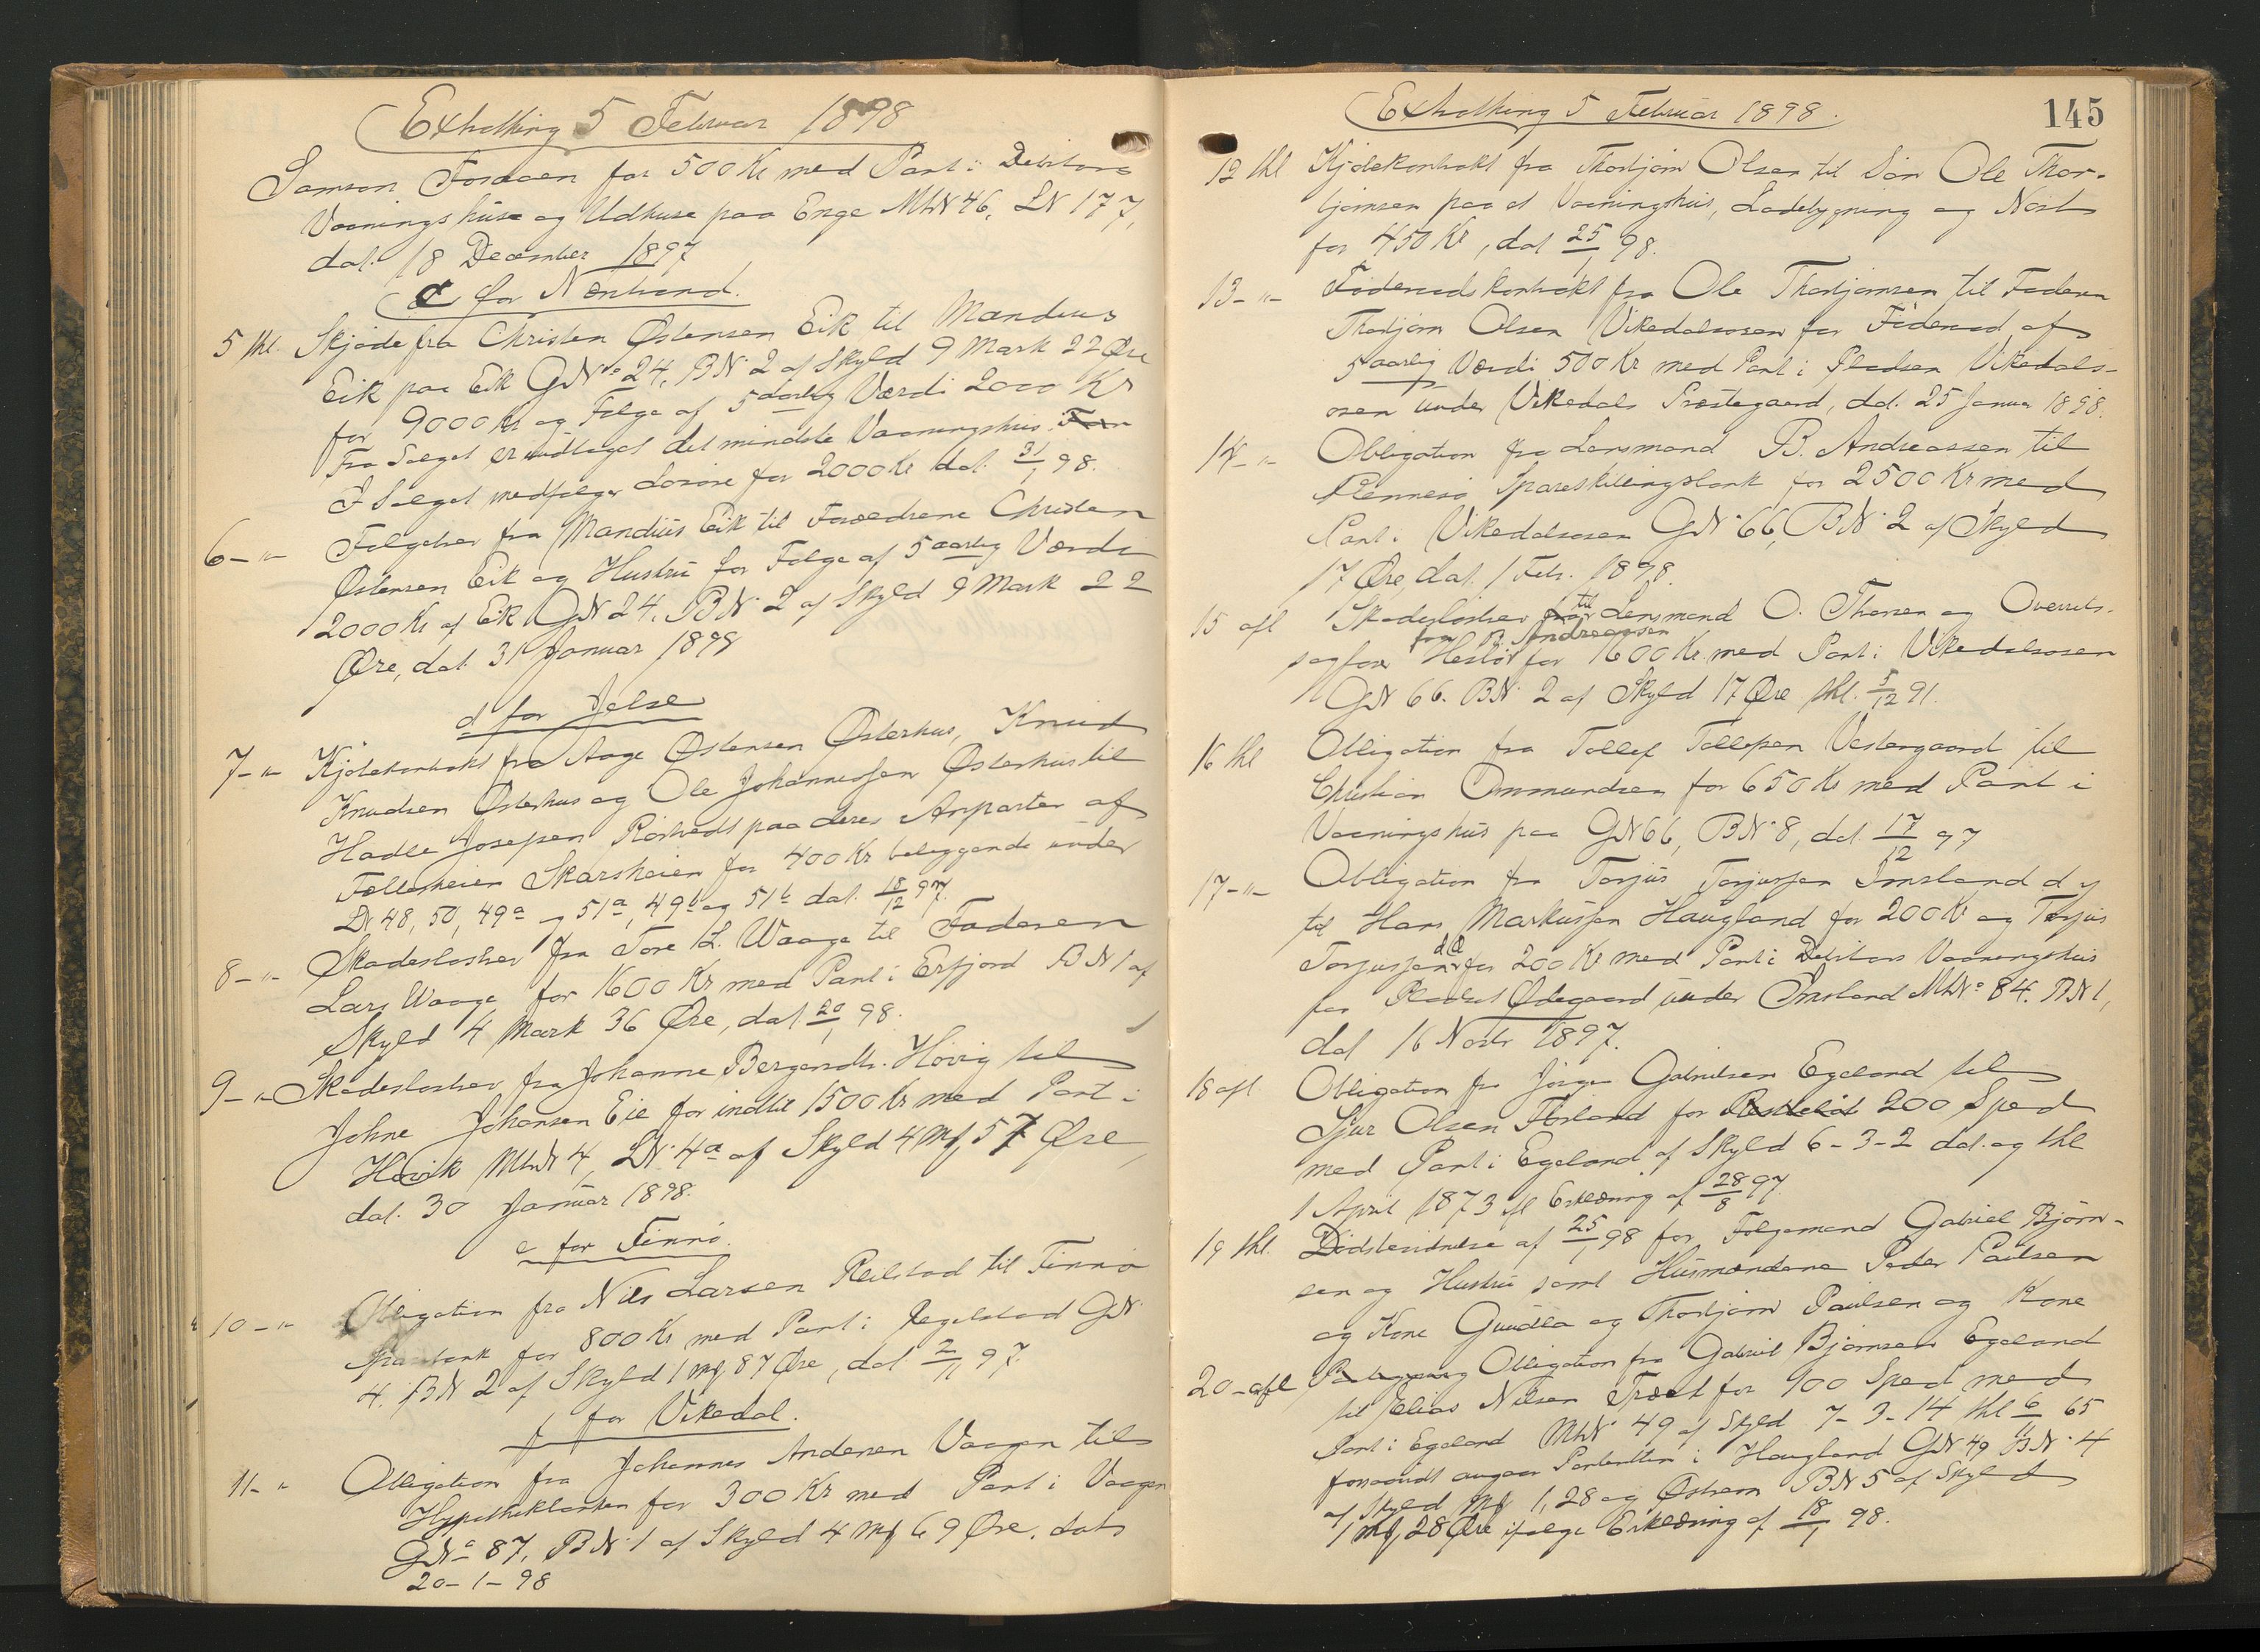 Extralthing 5 Februar 1898
Samson Fosaaen for 500 Kr med Pant i Debitors
Vaaningshuse og Udhuse paa Enge MtrN 46, LN 177,
dat. 18 December 1897
c for Nærstrand.
5 thl. Skjøde fra Christen Østensen Eik til Mandius
Eik paa Eik GNo 24, BN 2 af Skyld 9 Mark 22 Øre
for 9000 Kr og Følge af 5 aarlig Værdi 2000 Kr
Fra Salget er undtaget det mindste Vaaningshus. Fra
I Salget medfølger Løsøre for 2000 Kr dat. 31/1 98.
6 - " - Følgebrev fra Mandius Eik til Forældrene Christen
Østensen Eik og Hustru for Følge af 5 aarlig Værdi
2000 Kr af Eik GN 24, BN 2 af Skyld 9 Mark 22
Øre, dat. 31 Januar 1898
d for Jelse
7 - " - Kjøbekontrakt fra Aage Østensen Østerhus, Knud
Knudsen Østerhus og Ole Johannessen Østerhus til
Hadle Josefsen Rørtvedt paa deres Anparter af
Fællesheien Skarsheien for 400 Kr beliggende under
LN 48, 50, 49a og 51a, 49b og 51b dat. 18/12 97.
8 - " - Skadesløsbrev fra Tore L. Waage til Faderen
Lars Waage for 1600 Kr med Pant i Erfjord BN 1 af
Skyld 4 Mark 36 Øre, dat. 20/1 98.
9 - " - Skadesløsbrev fra Johanne Bergersdtr. Høvig til
Johne Johansen Eie for indtil 1500 Kr med Pant i
Høvik MtrN 4, LN 4a af Skyld 4 Mk 57 Øre,
dat. 30 Januar 1898.
e for Finnø.
10 - " - Obligation fra Nils Larsen Reilstad til Finnø
Sparebank for 800 Kr med Pant i Regelstad GN
4, BN 2 af Skyld 1 Mk 87 Øre, dat. 2/11 97.
f for Vikedal.
11 - " Obligation fra Johannes Andersen Vaagen til
Hypothekbanken for 300 Kr med Pant i Vaagen
GNo 87, BN 1 af Skyld 4 Mk 69 Øre, dat
20-1-98
Extralthing 5 Februar 1898.
145
12 thl Kjøbekontrakt fra Thorbjørn Olsen til Søn Ole Thor-
bjørnsen paa et Vaaningshus, Ladebygning og Nøst
for 450 Kr, dat 25/1 98.
13 - " - Føderaadskontrakt fra Ole Thorbjørnsen til Faderen
Thorbjørn Olsen Vikedalsosen for Føderaad af
5 aarlig Værdi 500 Kr med Pant i Pladsen Vikedals-
osen under Vikedals Præstegaard, dat. 25 Januar 1898.
14 - " - Obligation fra Lensmand B. Andreassen til
Rennesø Spareskillingsbank for 2500 Kr med
Pant i Vikedalsosen GN 66, BN 2 af Skyld
17 Øre, dat. 1 Febr. 1898.
15 afl Skadesløsbrev fra til Lensmand O. Thorsen og Overrets-
sagfører Hestø fra B. Andreassen for 1600 Kr. med Pant i Vikedalsosen
GN 66. BN 2 af Skyld 17 Øre thl. 5/12 91.
16 thl Obligation fra Tollef Tollefsen Vestergaard til
Christian Ommundsen for 650 Kr med Pant i
Vaaningshus paa GN 66, BN 8, dat 17/12 97
17 - " - Obligation fra Torjus Torjussen Imsland d y
til Hans Markussen Haugland for 200 Kr og Torjus
Torjussen d Æ for 200 Kr med Pant i Debitors Vaaningshus
paa Pladset Ødegaard under Imsland MtrNo 84. BN 1,
dat 16 Novbr 1897.
18 afl Obligation fra Jørgen Gabrielsen Egeland til
Sjur Olsen Førland for 200 Sped
med Pant i Egeland af Skyld 6-3-2 dat. og thl
1 April 1873 ifl Erklæring af 28/8 97.
19 thl. Dødsbevidnelse af 25/1 98 for Følgemand Gabriel Bjørn-
sen og Hustru samt Husmændene Peder Paulsen
og Kone Gundla og Thorbjørn Paulsen og Kone
20 - afl Obligation fra Gabriel Bjørnsen Egeland
til Elias Nilsen Træet for 900 Sped med
Pant i Egeland MtrN 49 af Skyld 7-3-14 thl 6/11 65
forsaavidt angaar Panteretten i Haugland GN 49 BN 4
af Skyld Mk 1,28 og Østrem BN 5 af Skyld
1 Mk 28 Øre ifølge Erklæring af 18/1 98.